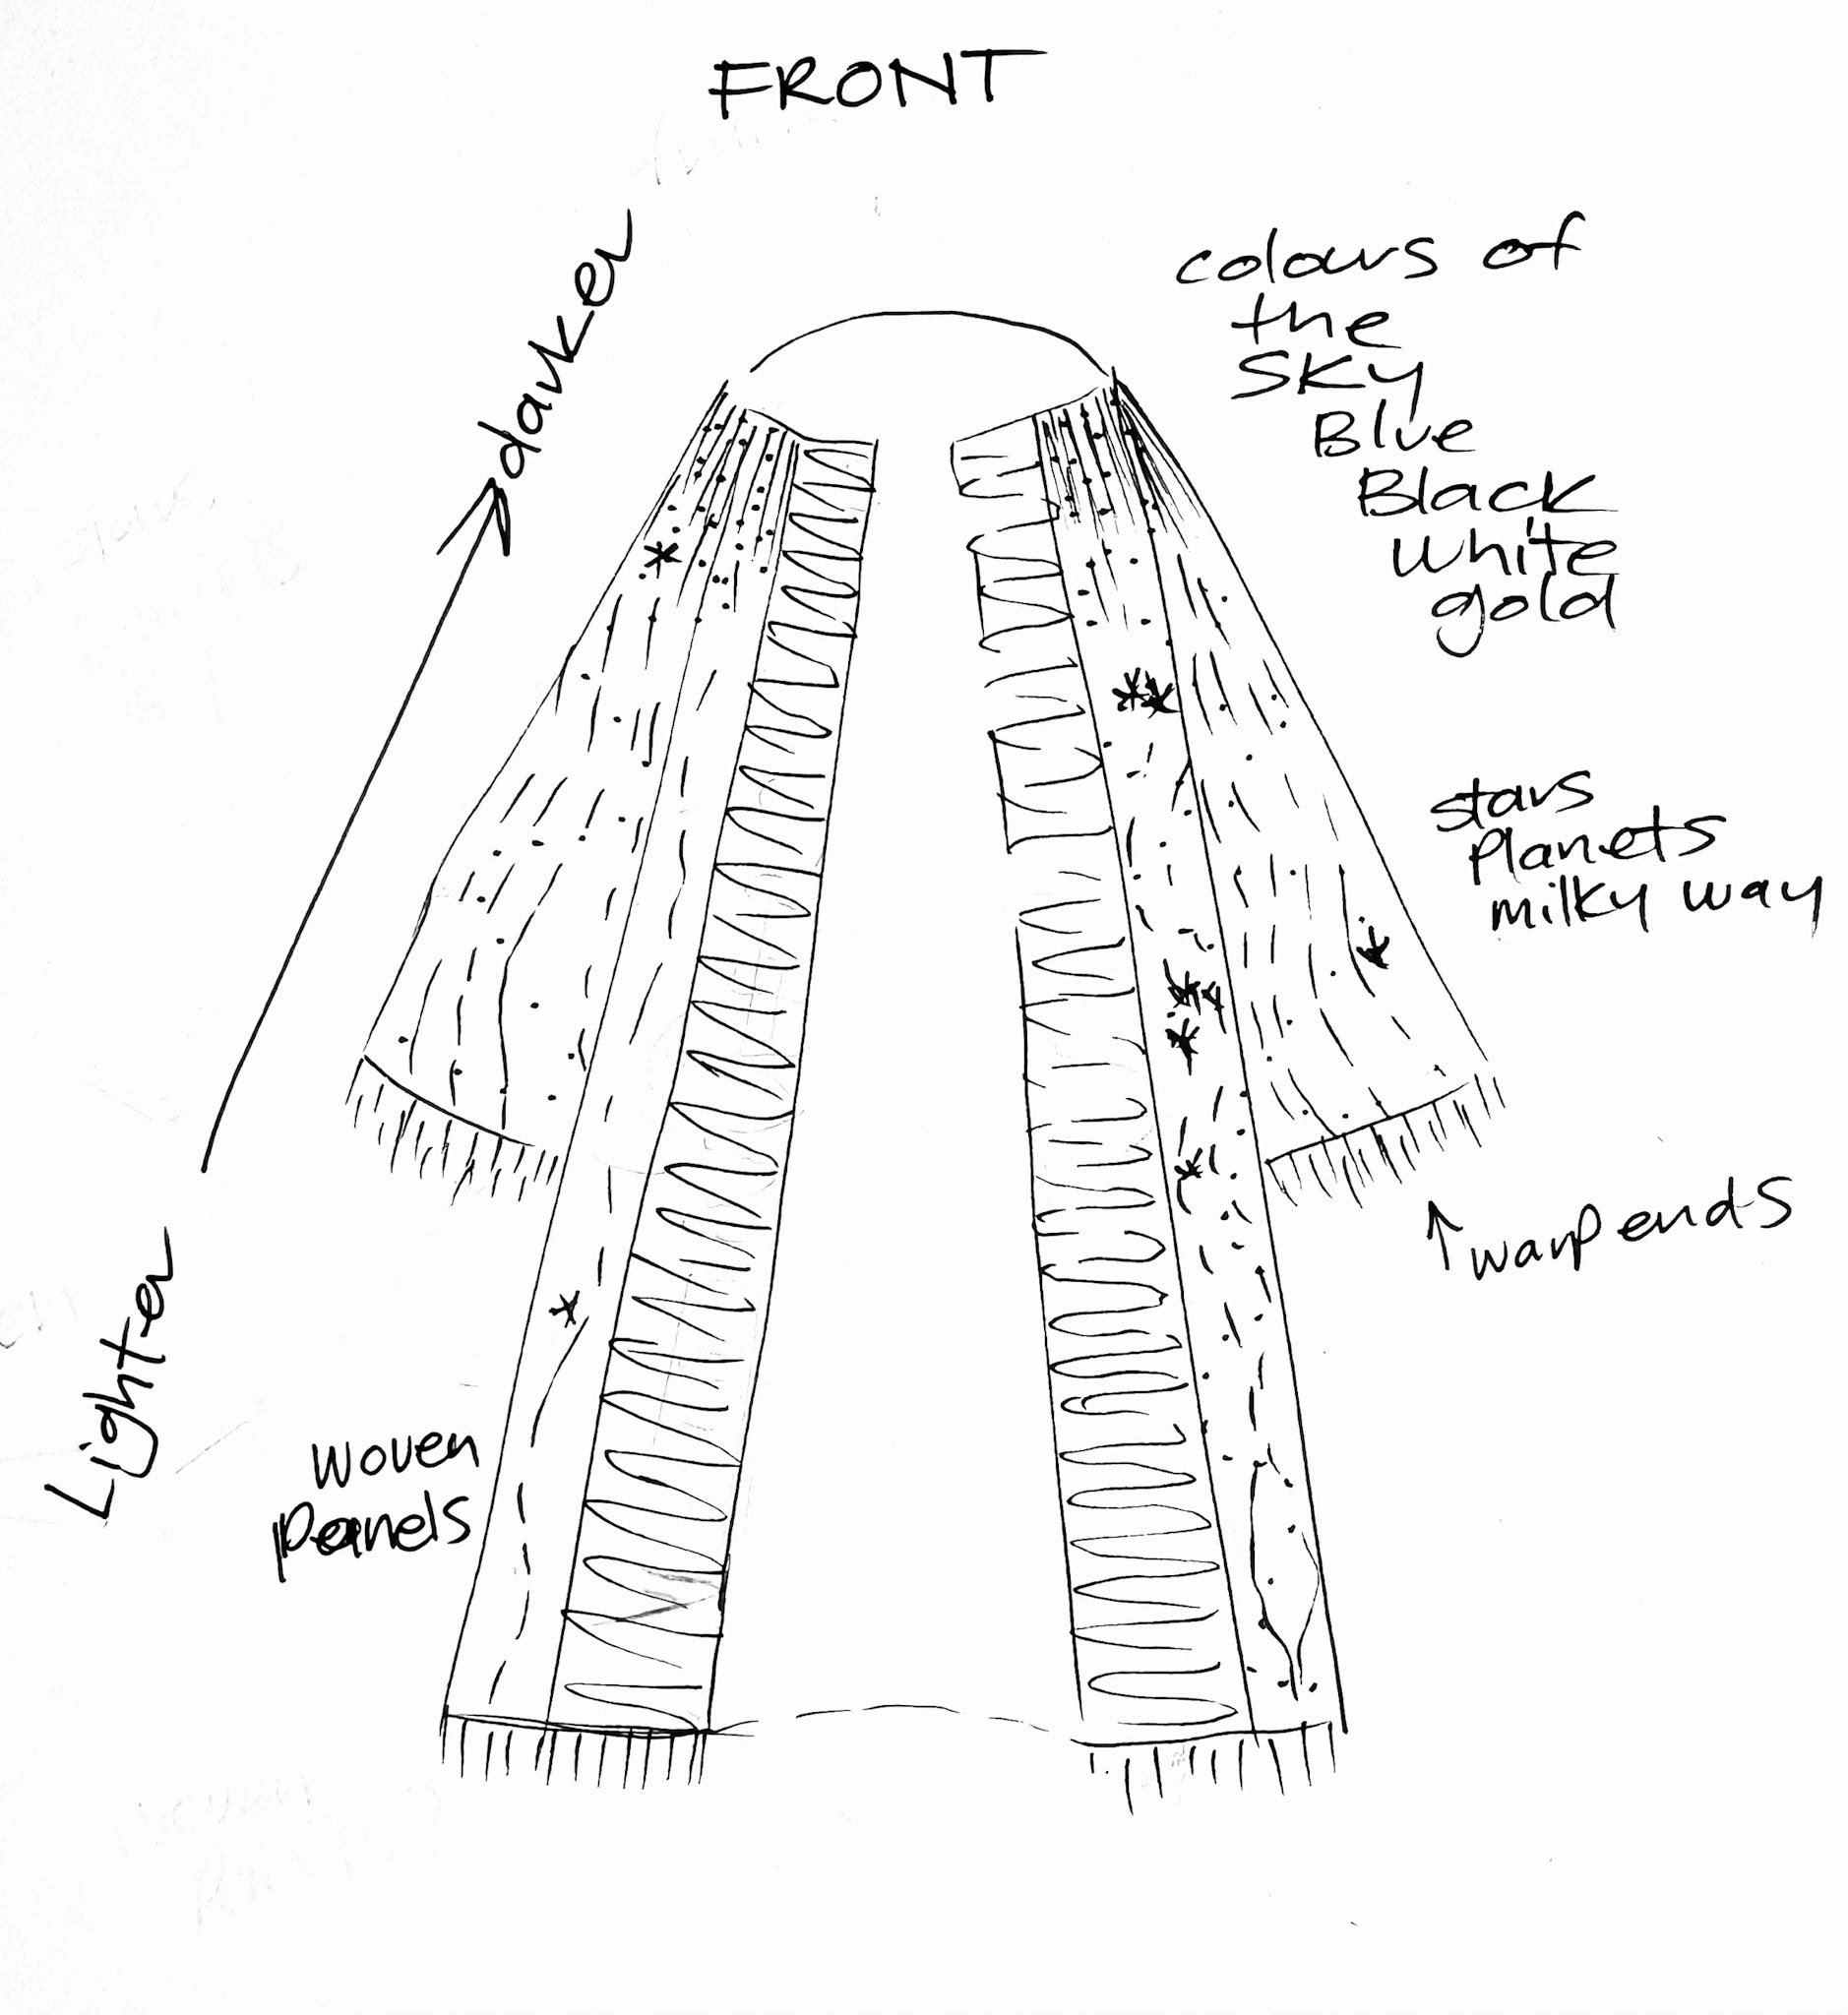 FRONT
darker
colours of
the
SKY
Blue
Black
white
gold
stars
planets
milky way
↑ warp ends
Lighter
woven
panels